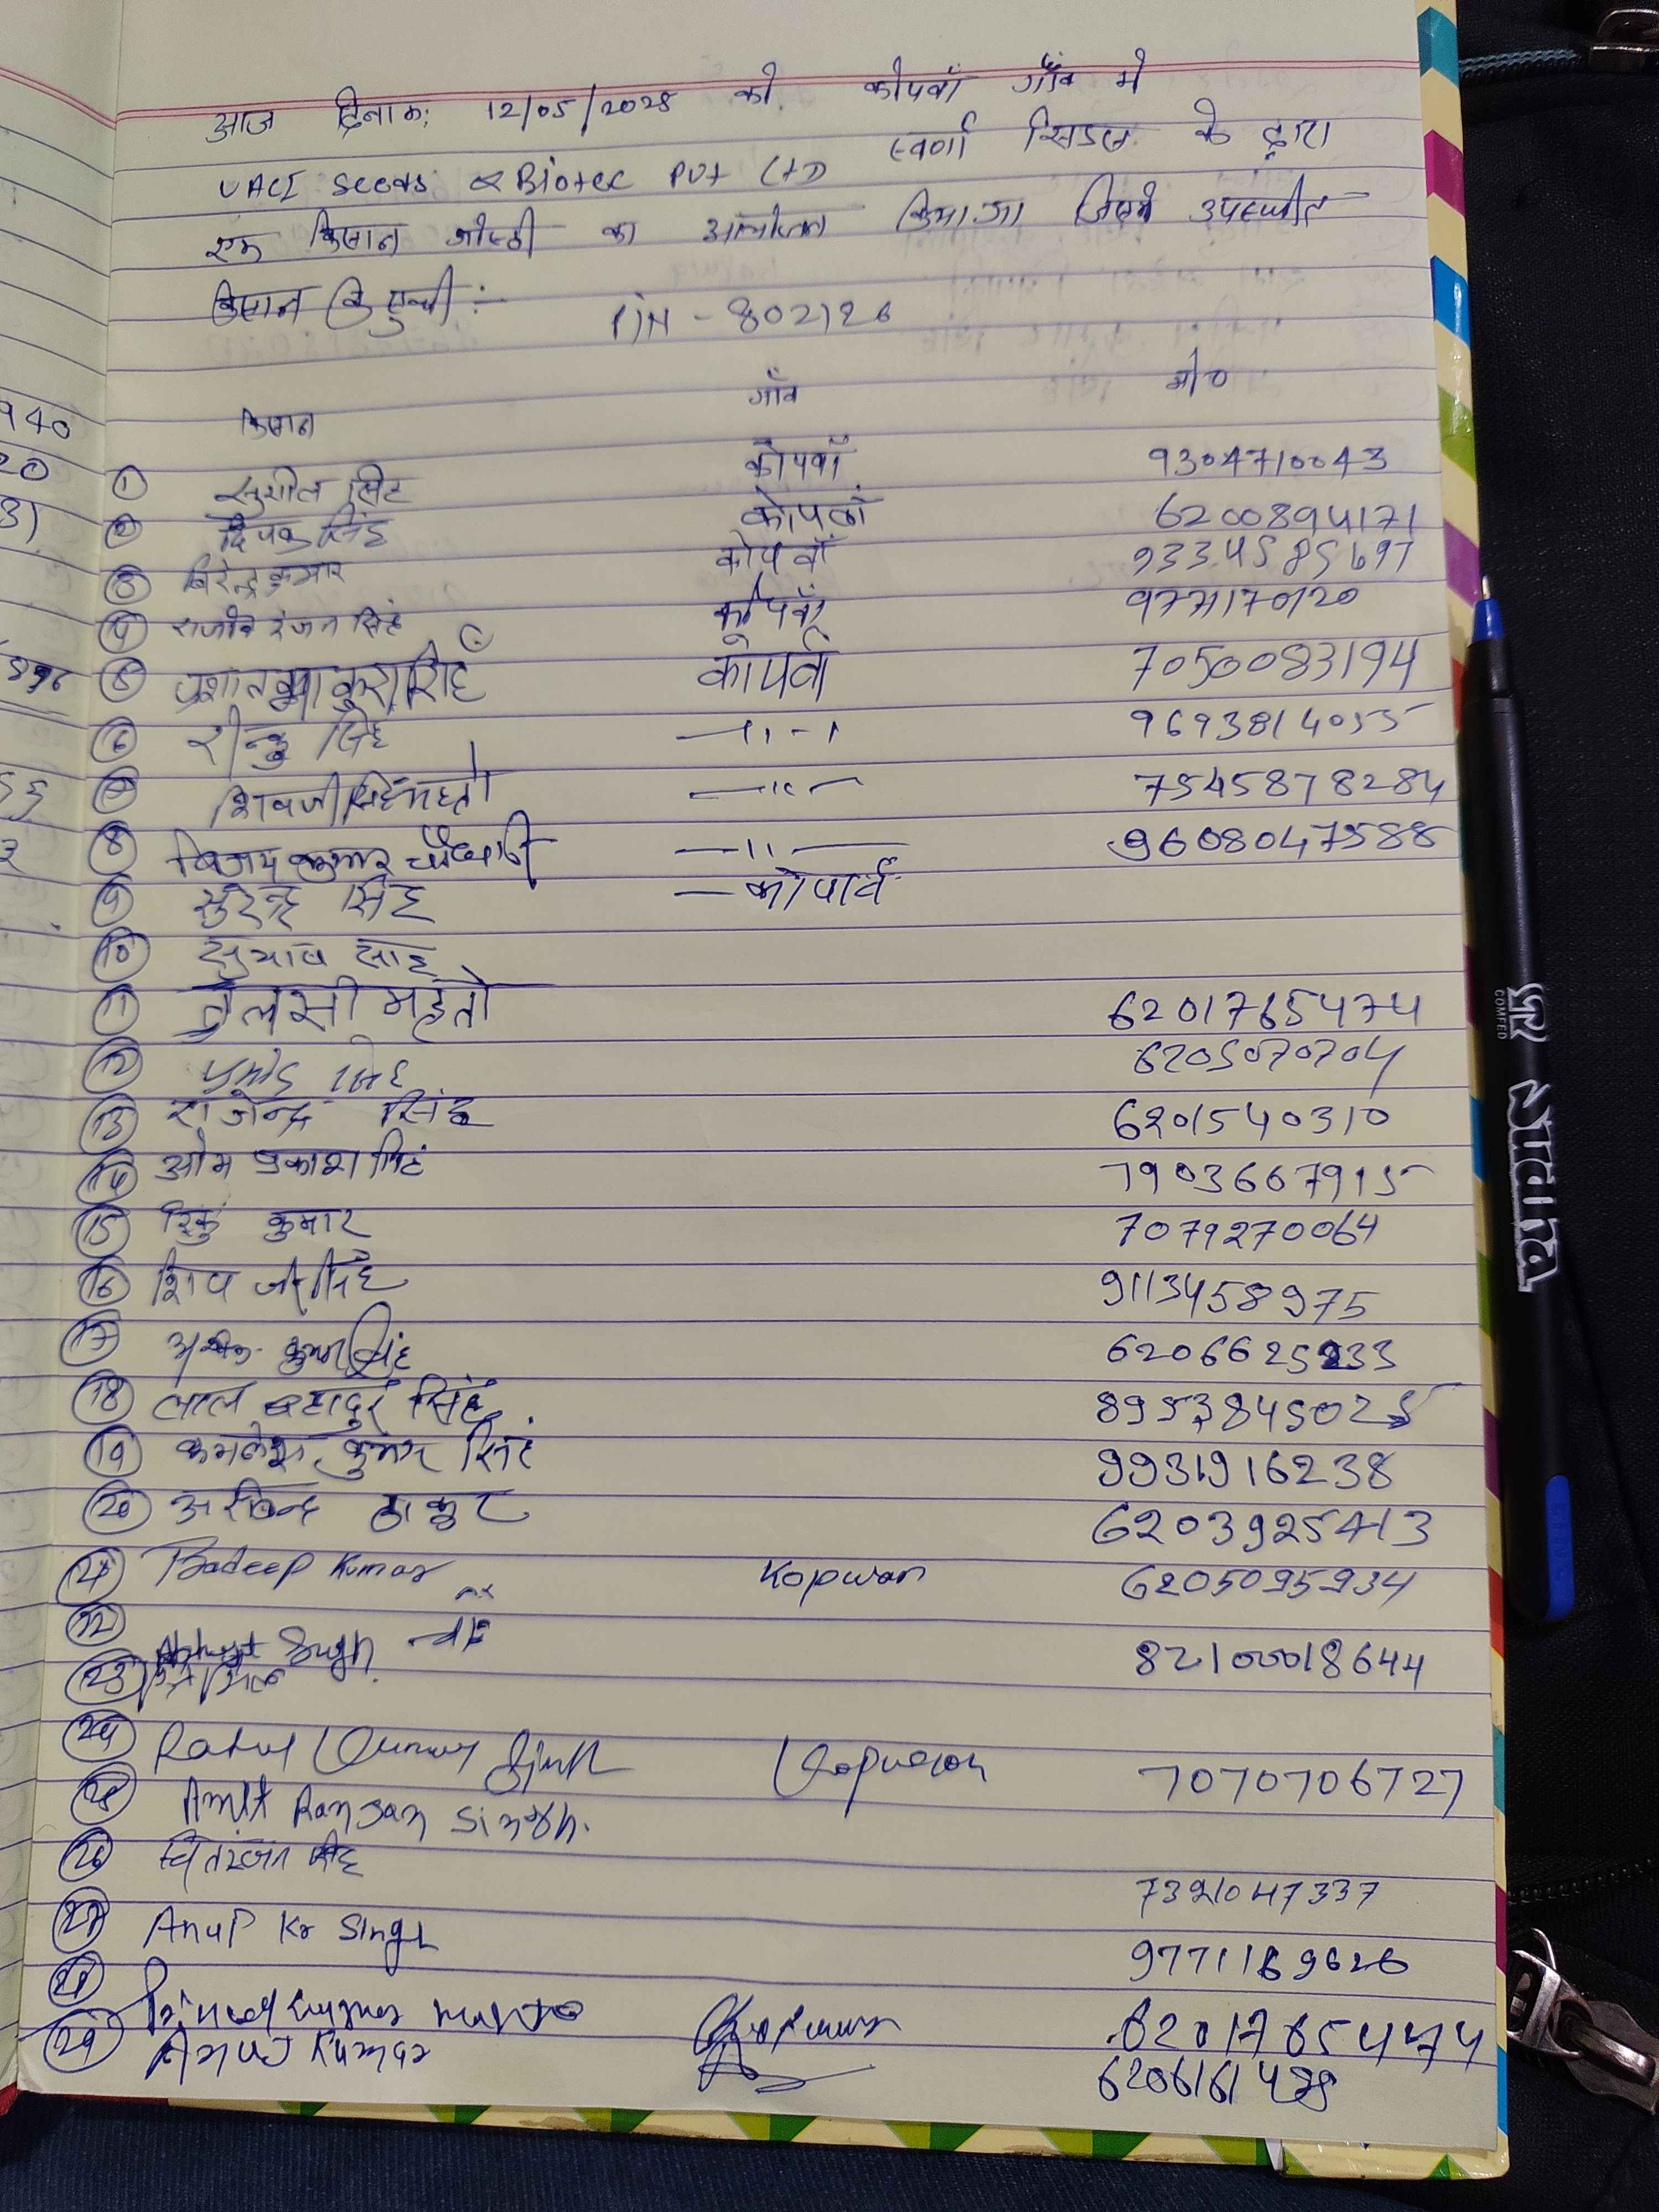 आज दिनांक: 12/05/2025 को कोपवाँ गाँव मे
UACI Seeds & Biotec PVT LTD स्वर्णा सिडस के द्वारा
एक किसान गोष्ठी का आयोजन किया गया जिसमे उपस्थीत
किसान कि सुची :-
PIN - 802126
किसान गाँव मो०
940
20
① सुशील सिंह कोपवाँ 9304710043
② दिपक सिंह कोपवाँ 6200894171
③ बिरेन्द्र कुमार कोपवाँ 9334585697
④ राजीव रंजन सिंह कोपवाँ 9771170120
⑤ कोपवाँ 7050083194
⑥ रीन्कु सिंह —11-1 9693814055
⑦ शिवजी सिंह महतो —11— 7545878284
⑧ विजय कुमार चौधारी —11— 9608047588
⑨ सुरेन्द्र सिंह — कोपावँ
⑩ सुभाष साह
⑪ तुलसी महतो 6201765474
⑫ प्रमोद सिंह 6205070704
⑬ राजेन्द्र सिंह 6201540310
⑭ ओम प्रकाश सिंह 7903667915
⑮ रिंकु कुमार 7079270064
⑯ शिव जी सिंह 9113458975
⑰ कुमार सिंह 6206625233
⑱ लाल बहादुर सिंह 8953845025
⑲ कमलेश कुमार सिंह 9931916238
⑳ अरबिन्द ठाकुर 6203925413
㉑ Pradeep Kumar Kopwan 6205095934
㉒ Singh 82100018644
㉓
㉔ Rahul Kumar Singh Kopwan 7070706727
㉕ Amit Ranjan Singh.
㉖ चितरंजन सिंह 7321047337
㉗ Anup Kr Singh 9771169626
㉘ Kopwan 6201765474
㉙ Anuj Kumar 6206161428
सुधा
COMFED
Sudha